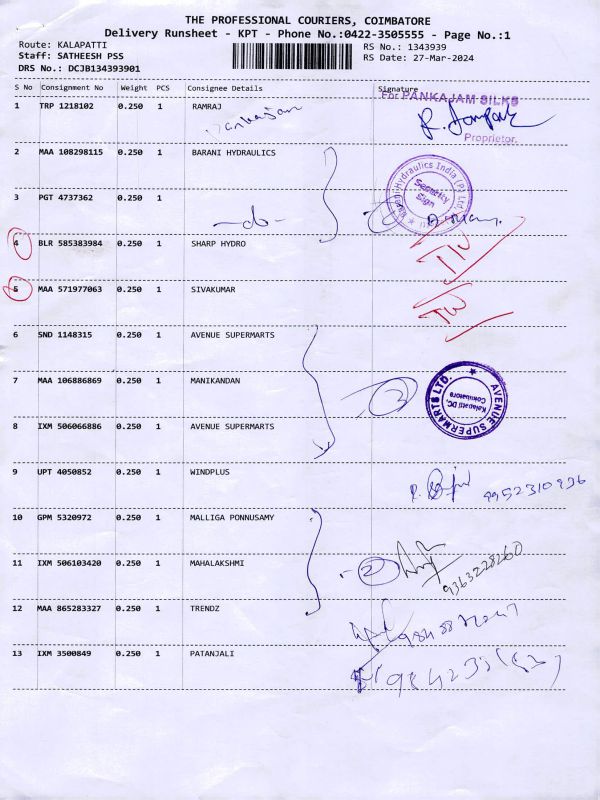 THE PROFESSIONAL COURIERS, COIMBATORE
Delivery Runsheet - KPT - Phone No.:0422-3505555 - Page No.:1
Route: KALAPATTI
RS No.: 1343939
Staff: SATHEESH PSS
RS Date: 27-Mar-2024
DRS No.: DCJB134393901
S No Consignment No Weight PCS Consignee Details Signature
For PANKAJAM SILKS
1 TRP 1218102 0.250 1 RAMRAJ
Pankajam
Proprietor.
2 MAA 108298115 0.250 1 BARANI HYDRAULICS
Barani Hydraulics India (P) Ltd.
Security
Sign
3 PGT 4737362 0.250 1
-do-
4 BLR 585383984 0.250 1 SHARP HYDRO
5 MAA 571977063 0.250 1 SIVAKUMAR
6 SND 1148315 0.250 1 AVENUE SUPERMARTS
7 MAA 106886869 0.250 1 MANIKANDAN
3
AVENUE SUPERMARTS LTD.
Kalapatti DC,
Coimbatore
8 IXM 506066886 0.250 1 AVENUE SUPERMARTS
9 UPT 4050852 0.250 1 WINDPLUS
9952310936
10 GPM 5320972 0.250 1 MALLIGA PONNUSAMY
11 IXM 506103420 0.250 1 MAHALAKSHMI
2
9363228260
12 MAA 865283327 0.250 1 TRENDZ
13 IXM 3500849 0.250 1 PATANJALI